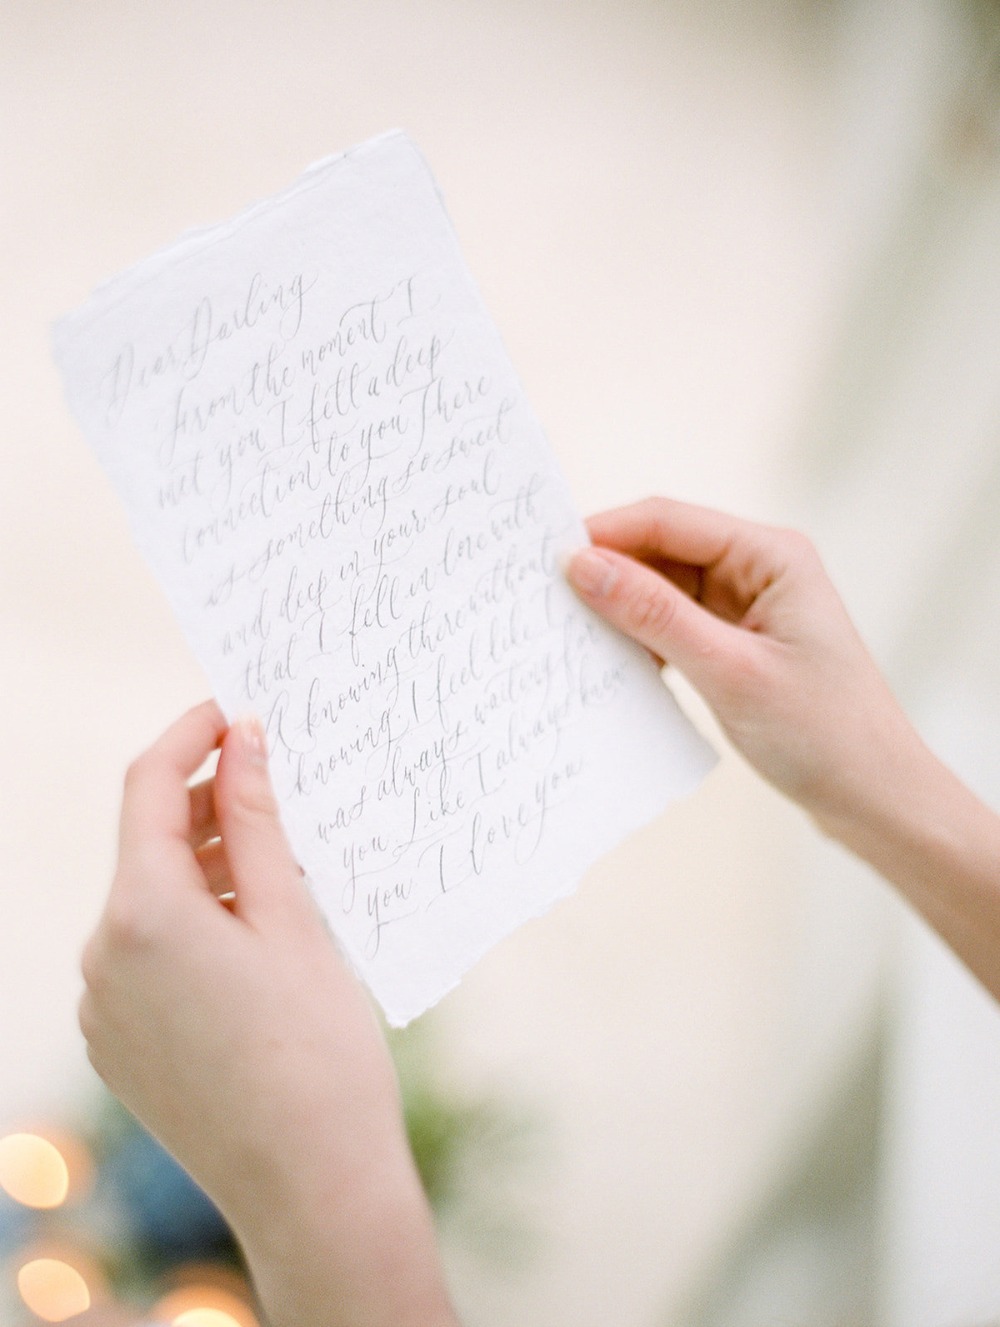 Dear Darling
from the moment I
met you I felt a deep
connection to you There
is something so sweet
and deep in your soul
that I fell in love with
A knowing there without
knowing. I feel like I
was always waiting for
you Like I always knew
you I love you